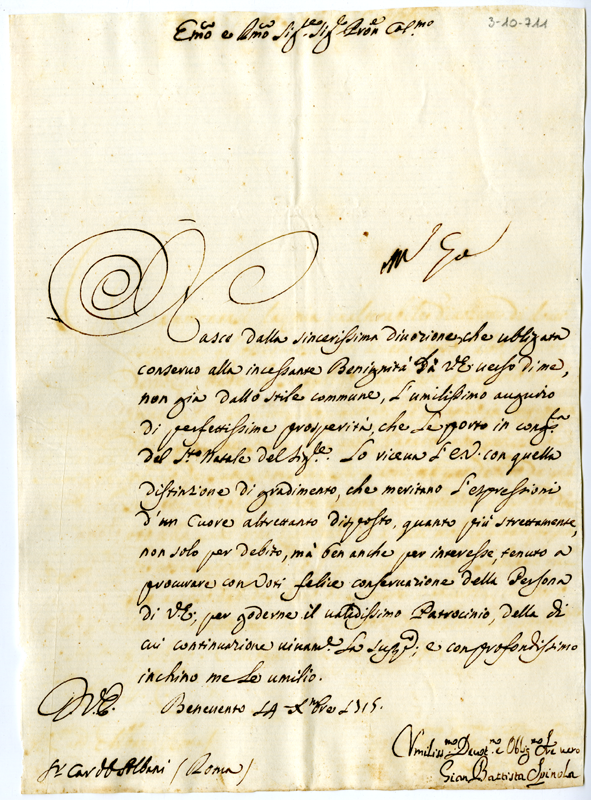 3-10-711
Em̃o e Rm̃o Sig.re Sig.re Pron̄ Col.mo
Nasce dalla sincerissima divozione, che ubligata
conservo alla incessante Benignità di V.E. verso di me,
non già dallo stile commune, l'umilissimo augurio
di perfettissime prosperità, che Le porto in cong.ra
del S.to Natale del Sig.re. Lo riceva l'E.V. con quella
distinzione di gradimento, che meritano l'espressioni
d'un Cuore altrettanto disposto, quanto più strettamente,
non solo per debito, mà ben anche per interesse, tenuto a
procurare con Voti felice conservazione della Persona
di V.E. per goderne il validissimo Patrocinio, della di
cui continuazione vivam.te La supp.co; e con profondissimo
inchino me Le umilio.
D. V.E. Benevento 14 Xmbre 1715.
Umiliss.mo Devot.mo e Oblig.mo Ser.re vero
Gian Battista Spinola
S.r Card. Albani (Roma)